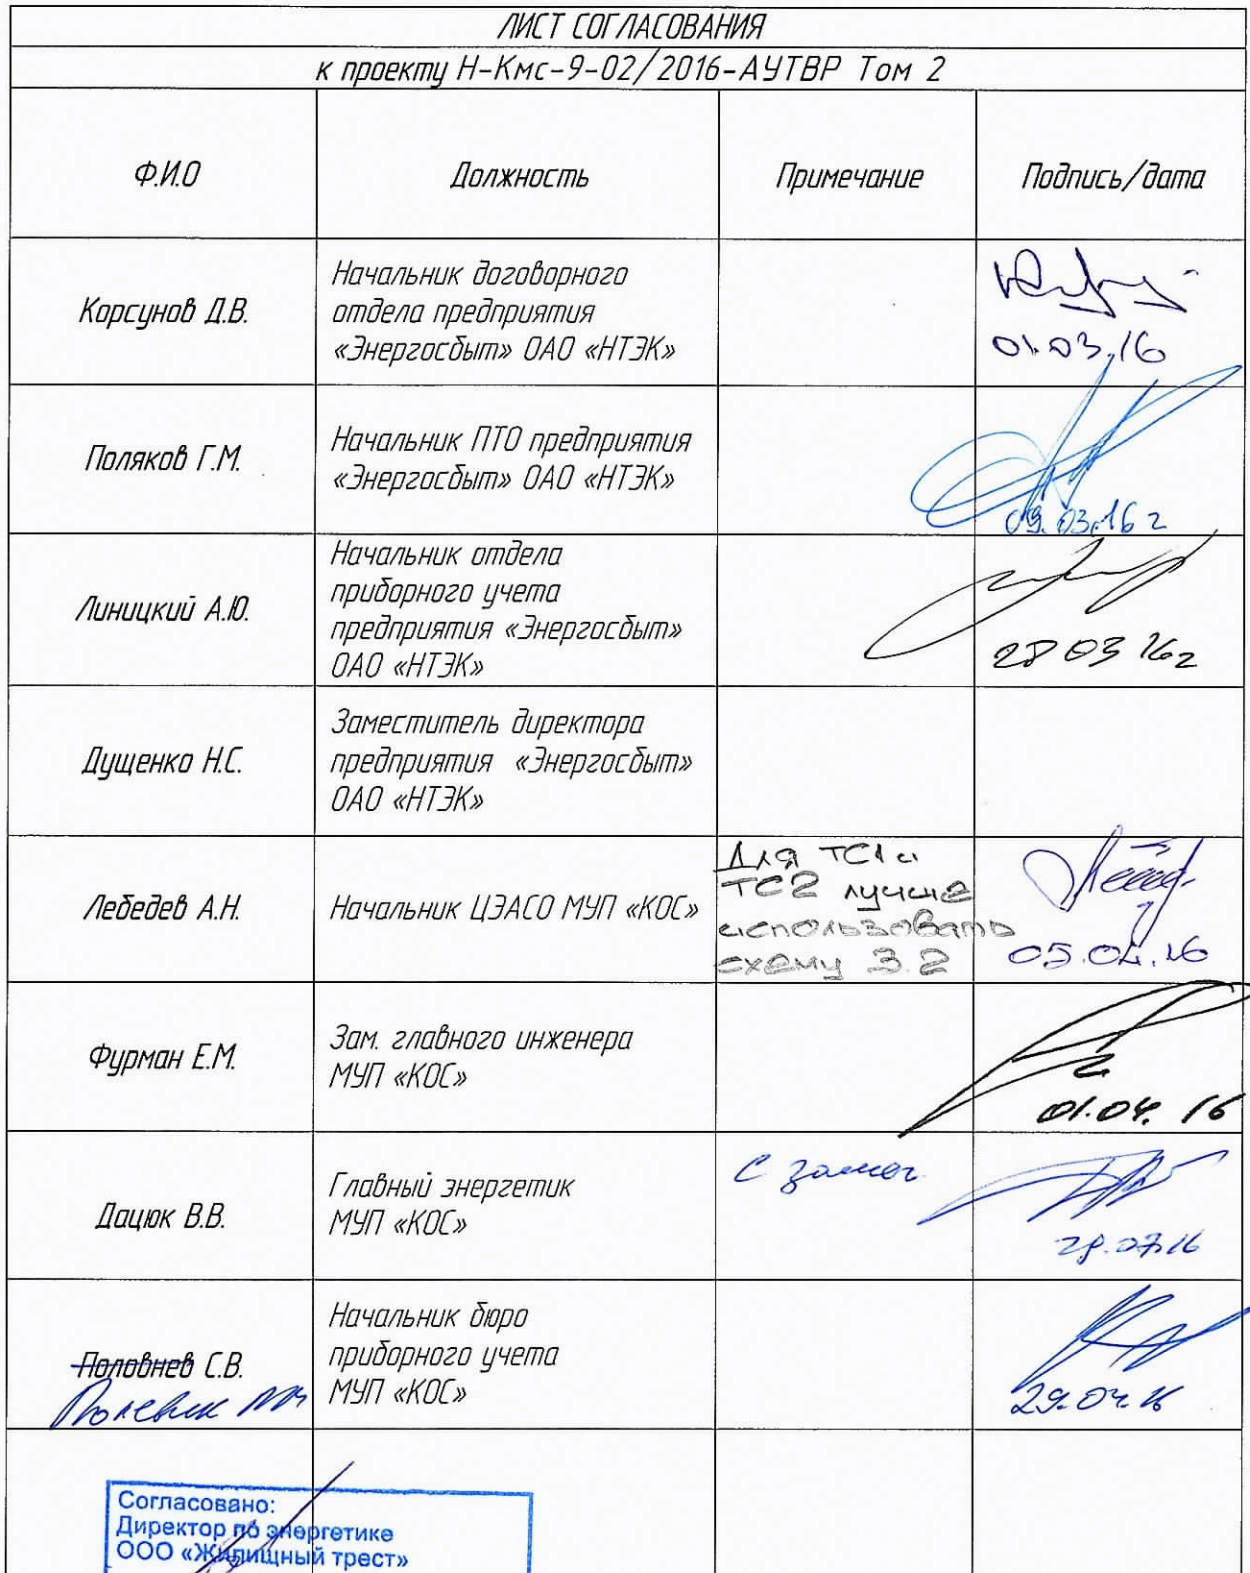 ЛИСТ СОГЛАСОВАНИЯ
к проекту Н-Кмс-9-02/2016-АУТВР Том 2
Ф.И.О
Должность
Примечание
Подпись/дата
Корсунов Д.В.
Начальник договорного
отдела предприятия
«Энергосбыт» ОАО «НТЭК»
01.03.16
Поляков Г.М.
Начальник ПТО предприятия
«Энергосбыт» ОАО «НТЭК»
09.03.16 г
Линицкий А.Ю.
Начальник отдела
приборного учета
предприятия «Энергосбыт»
ОАО «НТЭК»
28 03 16г
Дущенко Н.С.
Заместитель директора
предприятия «Энергосбыт»
ОАО «НТЭК»
Лебедев А.Н.
Начальник ЦЭАСО МУП «КОС»
Для ТС1 и
ТС2 лучше
использовать
схему 3.2
05.04.16
Фурман Е.М.
Зам. главного инженера
МУП «КОС»
01.04.16
Дацюк В.В.
Главный энергетик
МУП «КОС»
С замеч.
Половнев С.В.
Начальник бюро
приборного учета
МУП «КОС»
29.04.16
Согласовано:
Директор по энергетике
ООО «Жилищный трест»